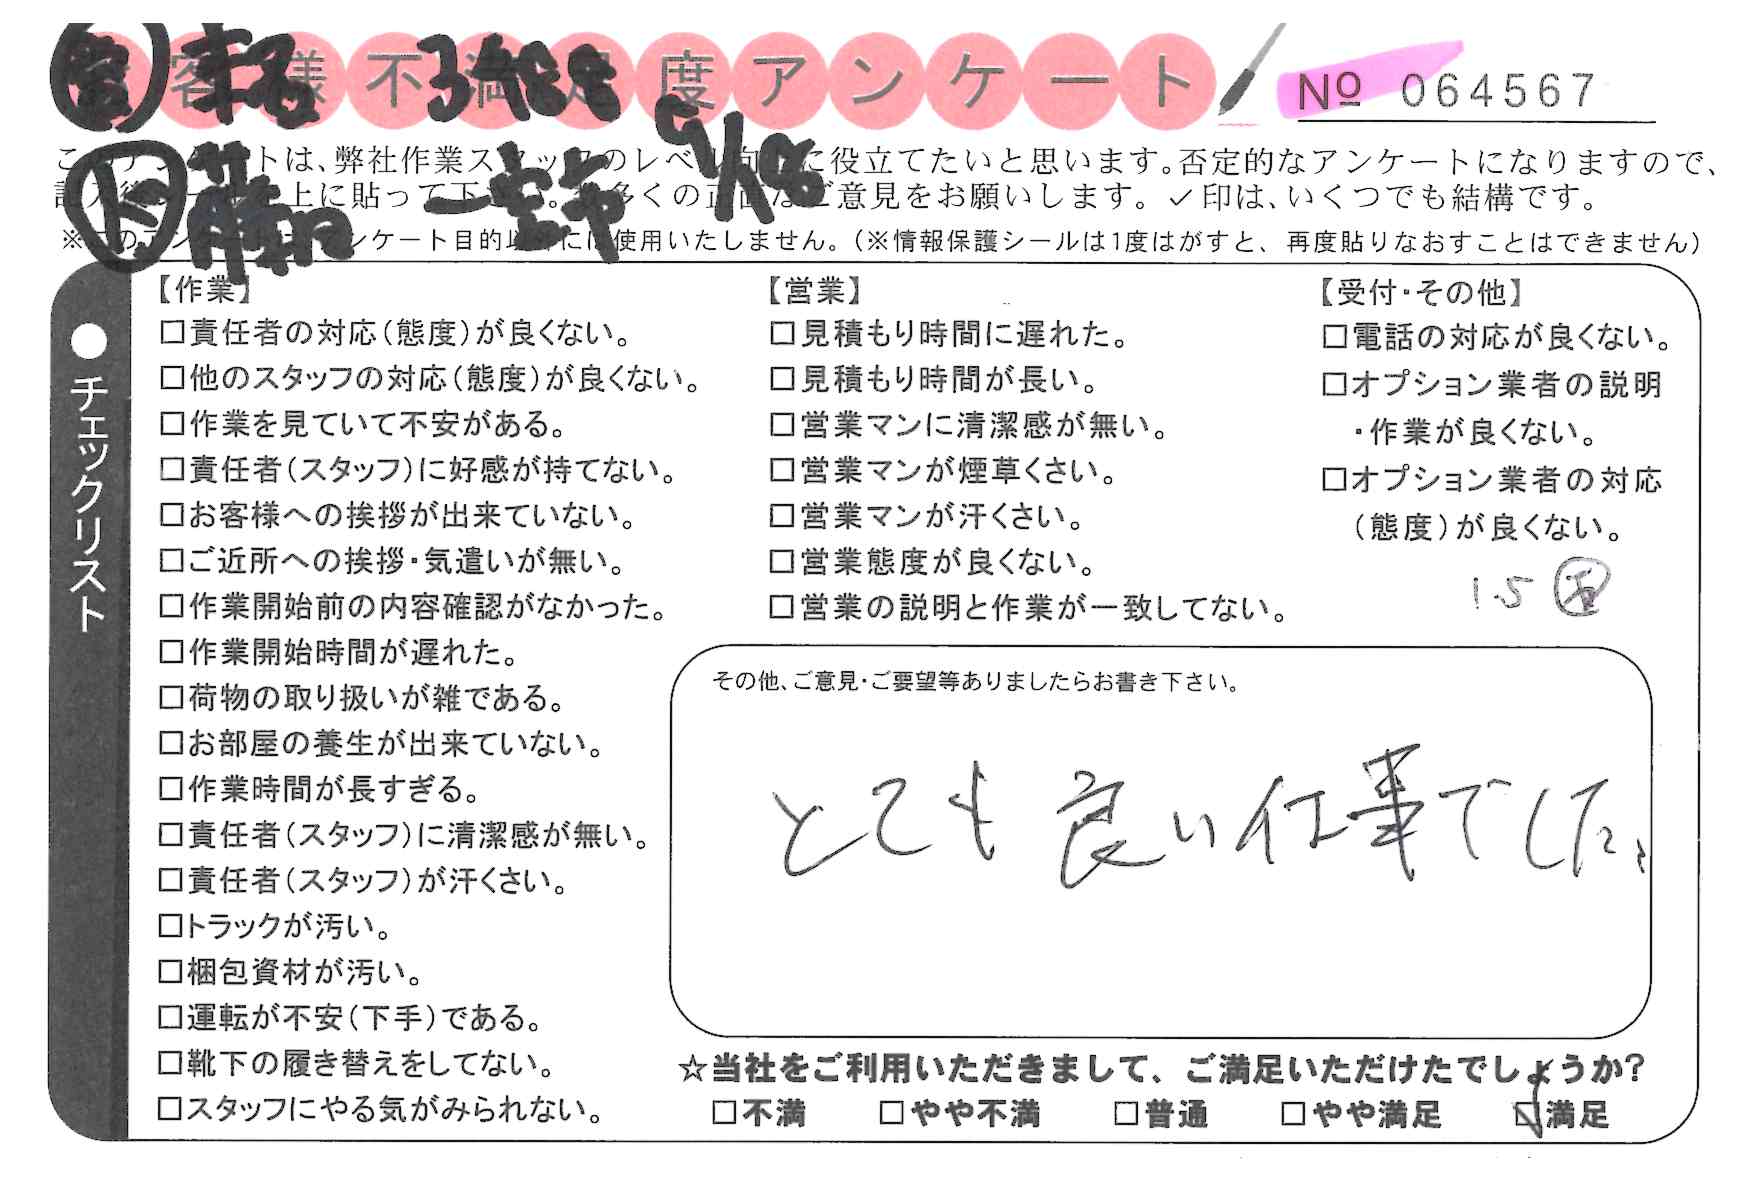 客様不満足度アンケート
No 064567
9/18
このアンケートは、弊社作業スタッフのレベル向上に役立てたいと思います。否定的なアンケートになりますので、
上に貼って下 多くの正直なご意見をお願いします。✓印は、いくつでも結構です。
※このアンケートは、アンケート目的以外には使用いたしません。(※情報保護シールは1度はがすと、再度貼りなおすことはできません)
●チェックリスト
【作業】
□責任者の対応(態度)が良くない。
□他のスタッフの対応(態度)が良くない。
□作業を見ていて不安がある。
□責任者(スタッフ)に好感が持てない。
□お客様への挨拶が出来ていない。
□ご近所への挨拶・気遣いが無い。
□作業開始前の内容確認がなかった。
□作業開始時間が遅れた。
□荷物の取り扱いが雑である。
□お部屋の養生が出来ていない。
□作業時間が長すぎる。
□責任者(スタッフ)に清潔感が無い。
□責任者(スタッフ)が汗くさい。
□トラックが汚い。
□梱包資材が汚い。
□運転が不安(下手)である。
□靴下の履き替えをしてない。
□スタッフにやる気がみられない。
【営業】
□見積もり時間に遅れた。
□見積もり時間が長い。
□営業マンに清潔感が無い。
□営業マンが煙草くさい。
□営業マンが汗くさい。
□営業態度が良くない。
□営業の説明と作業が一致してない。
【受付・その他】
□電話の対応が良くない。
□オプション業者の説明
・作業が良くない。
□オプション業者の対応
(態度)が良くない。
1.5
その他、ご意見・ご要望等ありましたらお書き下さい。
とても良い仕事でした。
☆当社をご利用いただきまして、ご満足いただけたでしょうか?
□不満 □やや不満 □普通 □やや満足 ☑満足